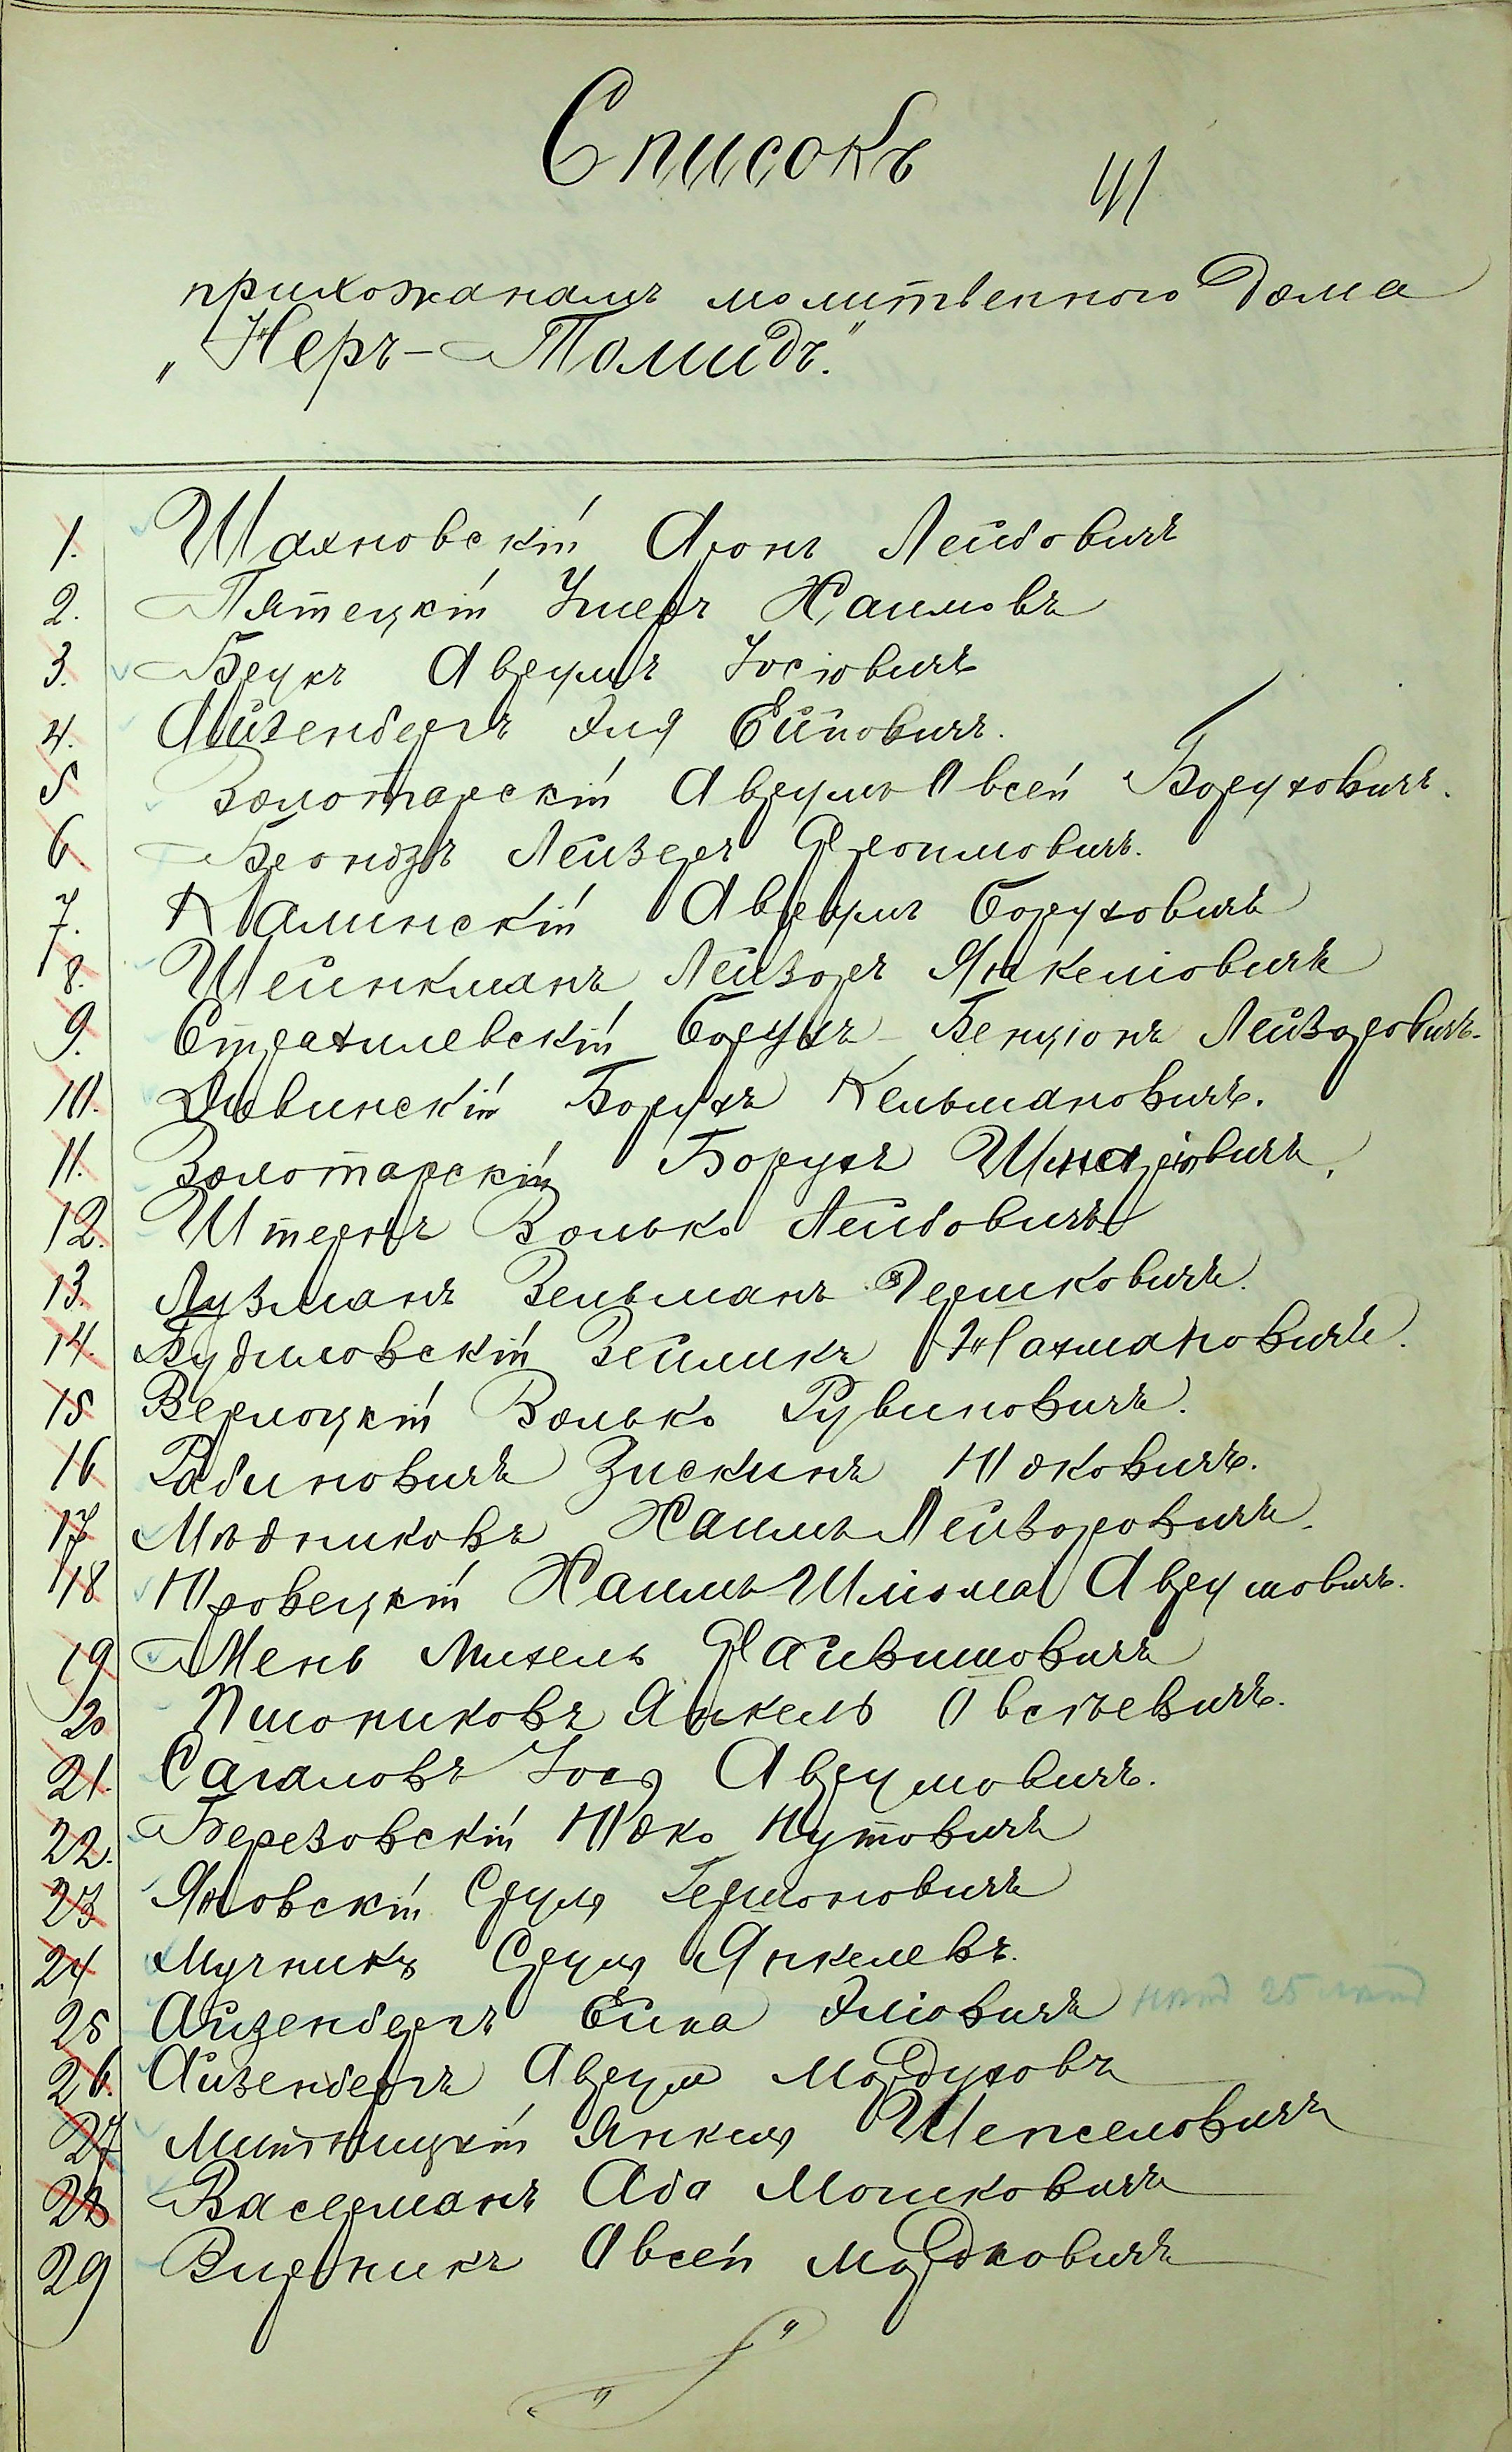 Списокъ
41
прихожанамъ молитвенного дома
„Неръ-Томидъ."
1. Шахновскій Аронъ Лейбовичъ
2. Пятецкій Умеръ Хаимовъ
3. Брукъ Аврумъ Іосіовичъ
4. Айзенбергъ Эля Ейновичъ.
5 Золотарскій Аврумъ Овсей Боруховичъ.
6. Брондзъ Лейзеръ Фроимовичъ.
7. Калинскій Аврумъ Боруховичъ
8. Шейнкманъ Лейзоръ Янкеліовичъ
9. Стратилевскій Борухъ-Бенціонъ Лейзоровичъ.
10. Дивинскій Борухъ Кельмановичъ.
11. Золотарскій Борухъ
12. Штернъ Волько Лейбовичъ
13. Лузманъ Зельманъ Гершковичъ.
14. Будиловскій Зейликъ Нахмановичъ.
15 Верлоцкій Волько Рувиновичъ.
16 Рабиновичъ Зискинъ Юковичъ.
17 Мѣдниковъ Хаимъ Лейзоровичъ.
18 Юровецкій Хаимъ Шліома Аврумовичъ.
19 Мень Михель Файвишовичъ
20 Пшониковъ Янкель Овсѣевичъ.
21. Сагаловъ Іося Аврумовичъ.
22. Березовскій Юдко Нутовичъ
23 Яновскій Сруль Гершоновичъ
24 Мучникъ Сруль Янкелевъ.
25 Айзенбергъ Ейна Эліовичъ нѣтъ 25 лѣтъ
26. Айзенбергъ Аврум Мордуховъ
27 Митницкій Янкель Шепселовичъ
28 Васерманъ Аба Мошковичъ
29 Вирникъ Овсей Мордковичъ